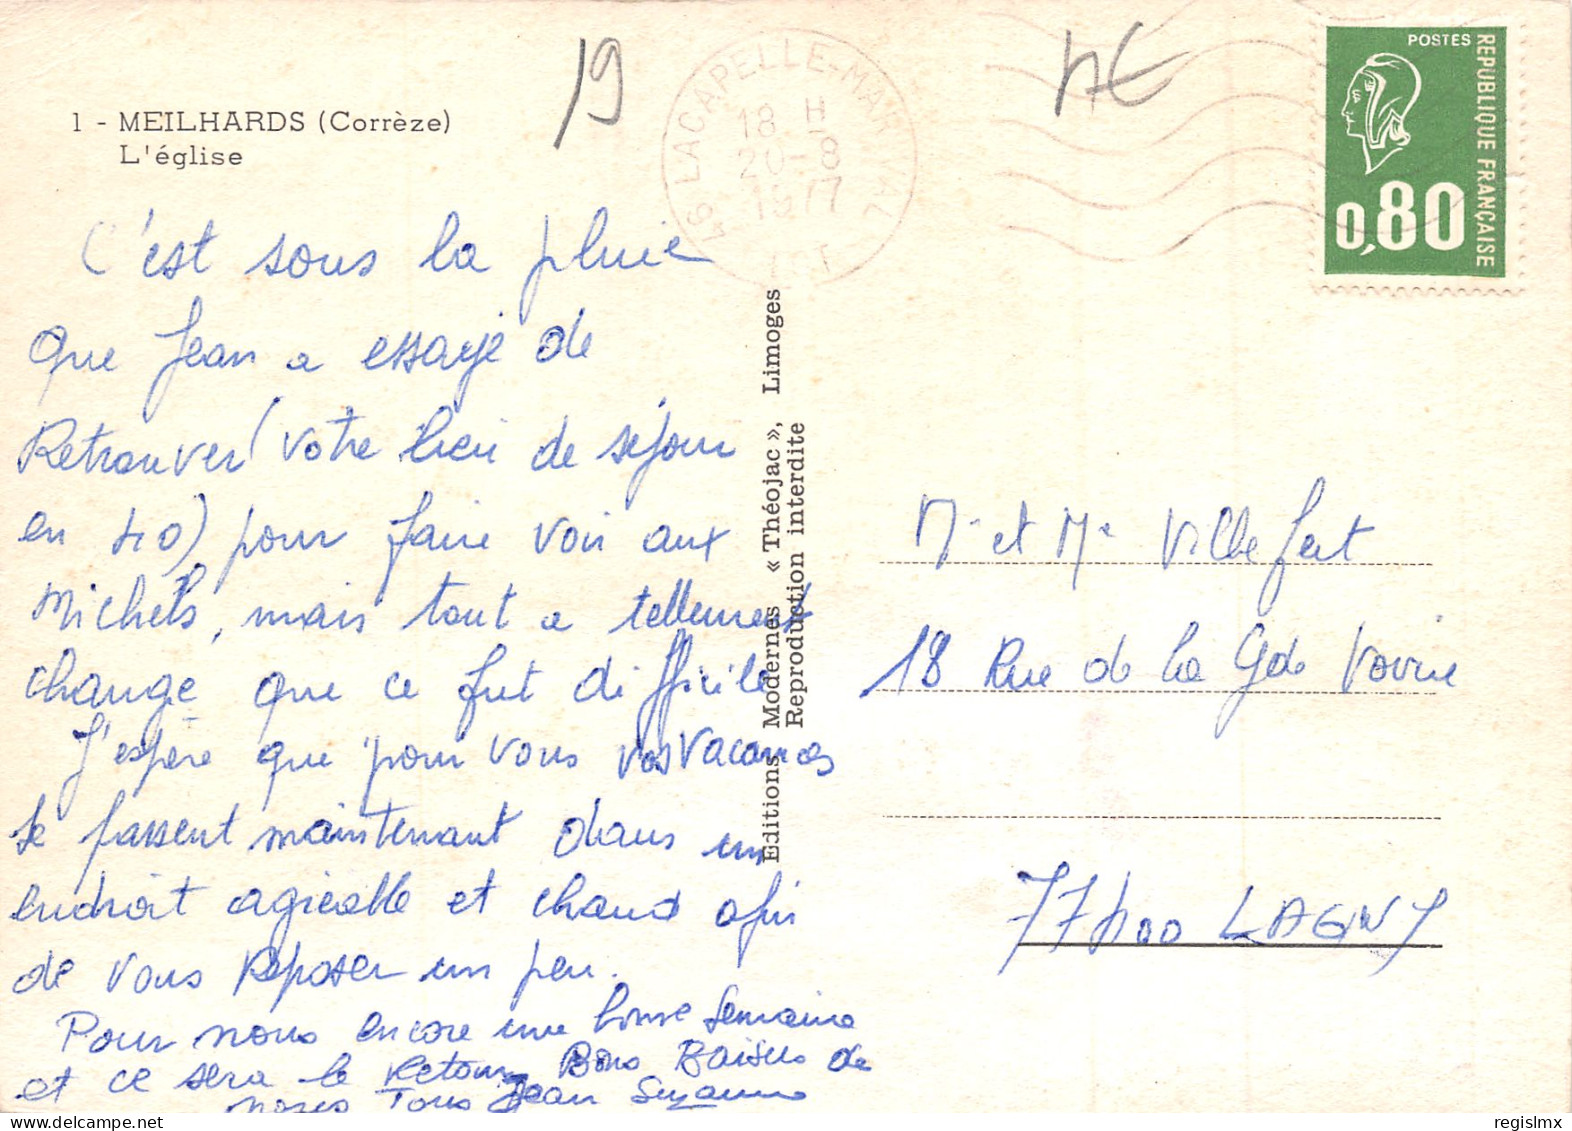 1 - MEILHARDS (Corrèze)
L'église
19
4€
46 LACAPELLE-MARIVAL
18 H
20-8
1977
LOT
POSTES
REPUBLIQUE FRANÇAISE
0,80
C'est sous la pluie
que Jean a essayé de
Retrouver (votre lieu de séjour
en 40) pour faire voir aux
Michels, mais tout a tellement
changé que ce fut difficile
J'espère que pour vous vos vacances
se passent maintenant dans un
endroit agréable et chaud afin
de vous reposer un peu.
Pour nous encore une bonne semaine
et ce sera le retour Bons Baisers de
nous Tous Jean Suzanne
Editions Modernes « Théojac », Limoges
Reproduction interdite
M. et Me Villefert
18 Rue de la Gde Voirie
77400 LAGNY
regislmx